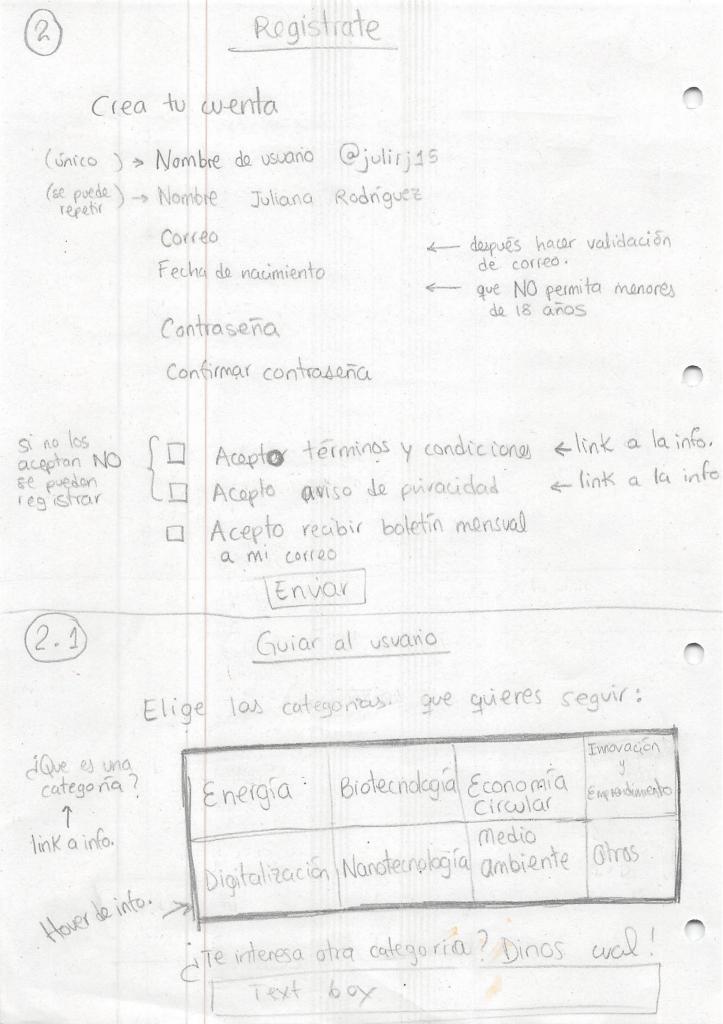 2
Registrate
Crea tu cuenta
(único) → Nombre de usuario @julirj15
(se puede repetir) → Nombre Juliana Rodríguez
Correo
← después hacer validación
de correo.
Fecha de nacimiento
← que NO permita menores
de 18 años
Contraseña
Confirmar contraseña
si no los
aceptan NO
se pueden
registrar
Acepto términos y condiciones ← link a la info.
Acepto aviso de privacidad ← link a la info
Acepto recibir boletín mensual
a mi correo
Enviar
2.1
Guiar al usuario
Elige las categorías que quieres seguir:
¿Que es una
categoría?
↑
link a info.
Energía
Biotecnología
Economía
Circular
Innovación
y
Emprendimiento
Digitalización
Nanotecnología
medio
ambiente
Otros
Hover de info. →
¿Te interesa otra categoría? Dinos cual!
Text box